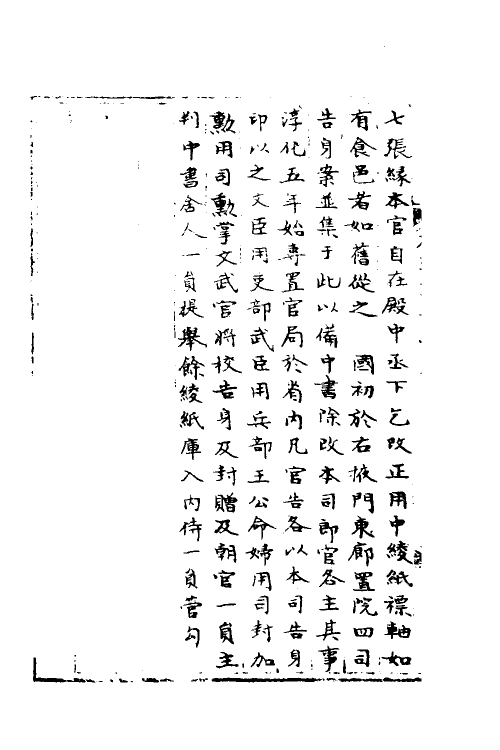 七張緣本官自在殿中丞下乞改正用中綾紙褾軸如
有食邑者如舊從之　國初於右掖門東廊置院四司
告身案並集于此以備中書除改本司郎官各主其事
淳化五年始專置官局於省內凡官告各以本司告身
印以之文臣用吏部武臣用兵部王公命婦用司封加
勲用司勲掌文武官將校告身及封贈及朝官一員主
判中書舍人一員提舉餘綾紙庫入內侍一員管勾